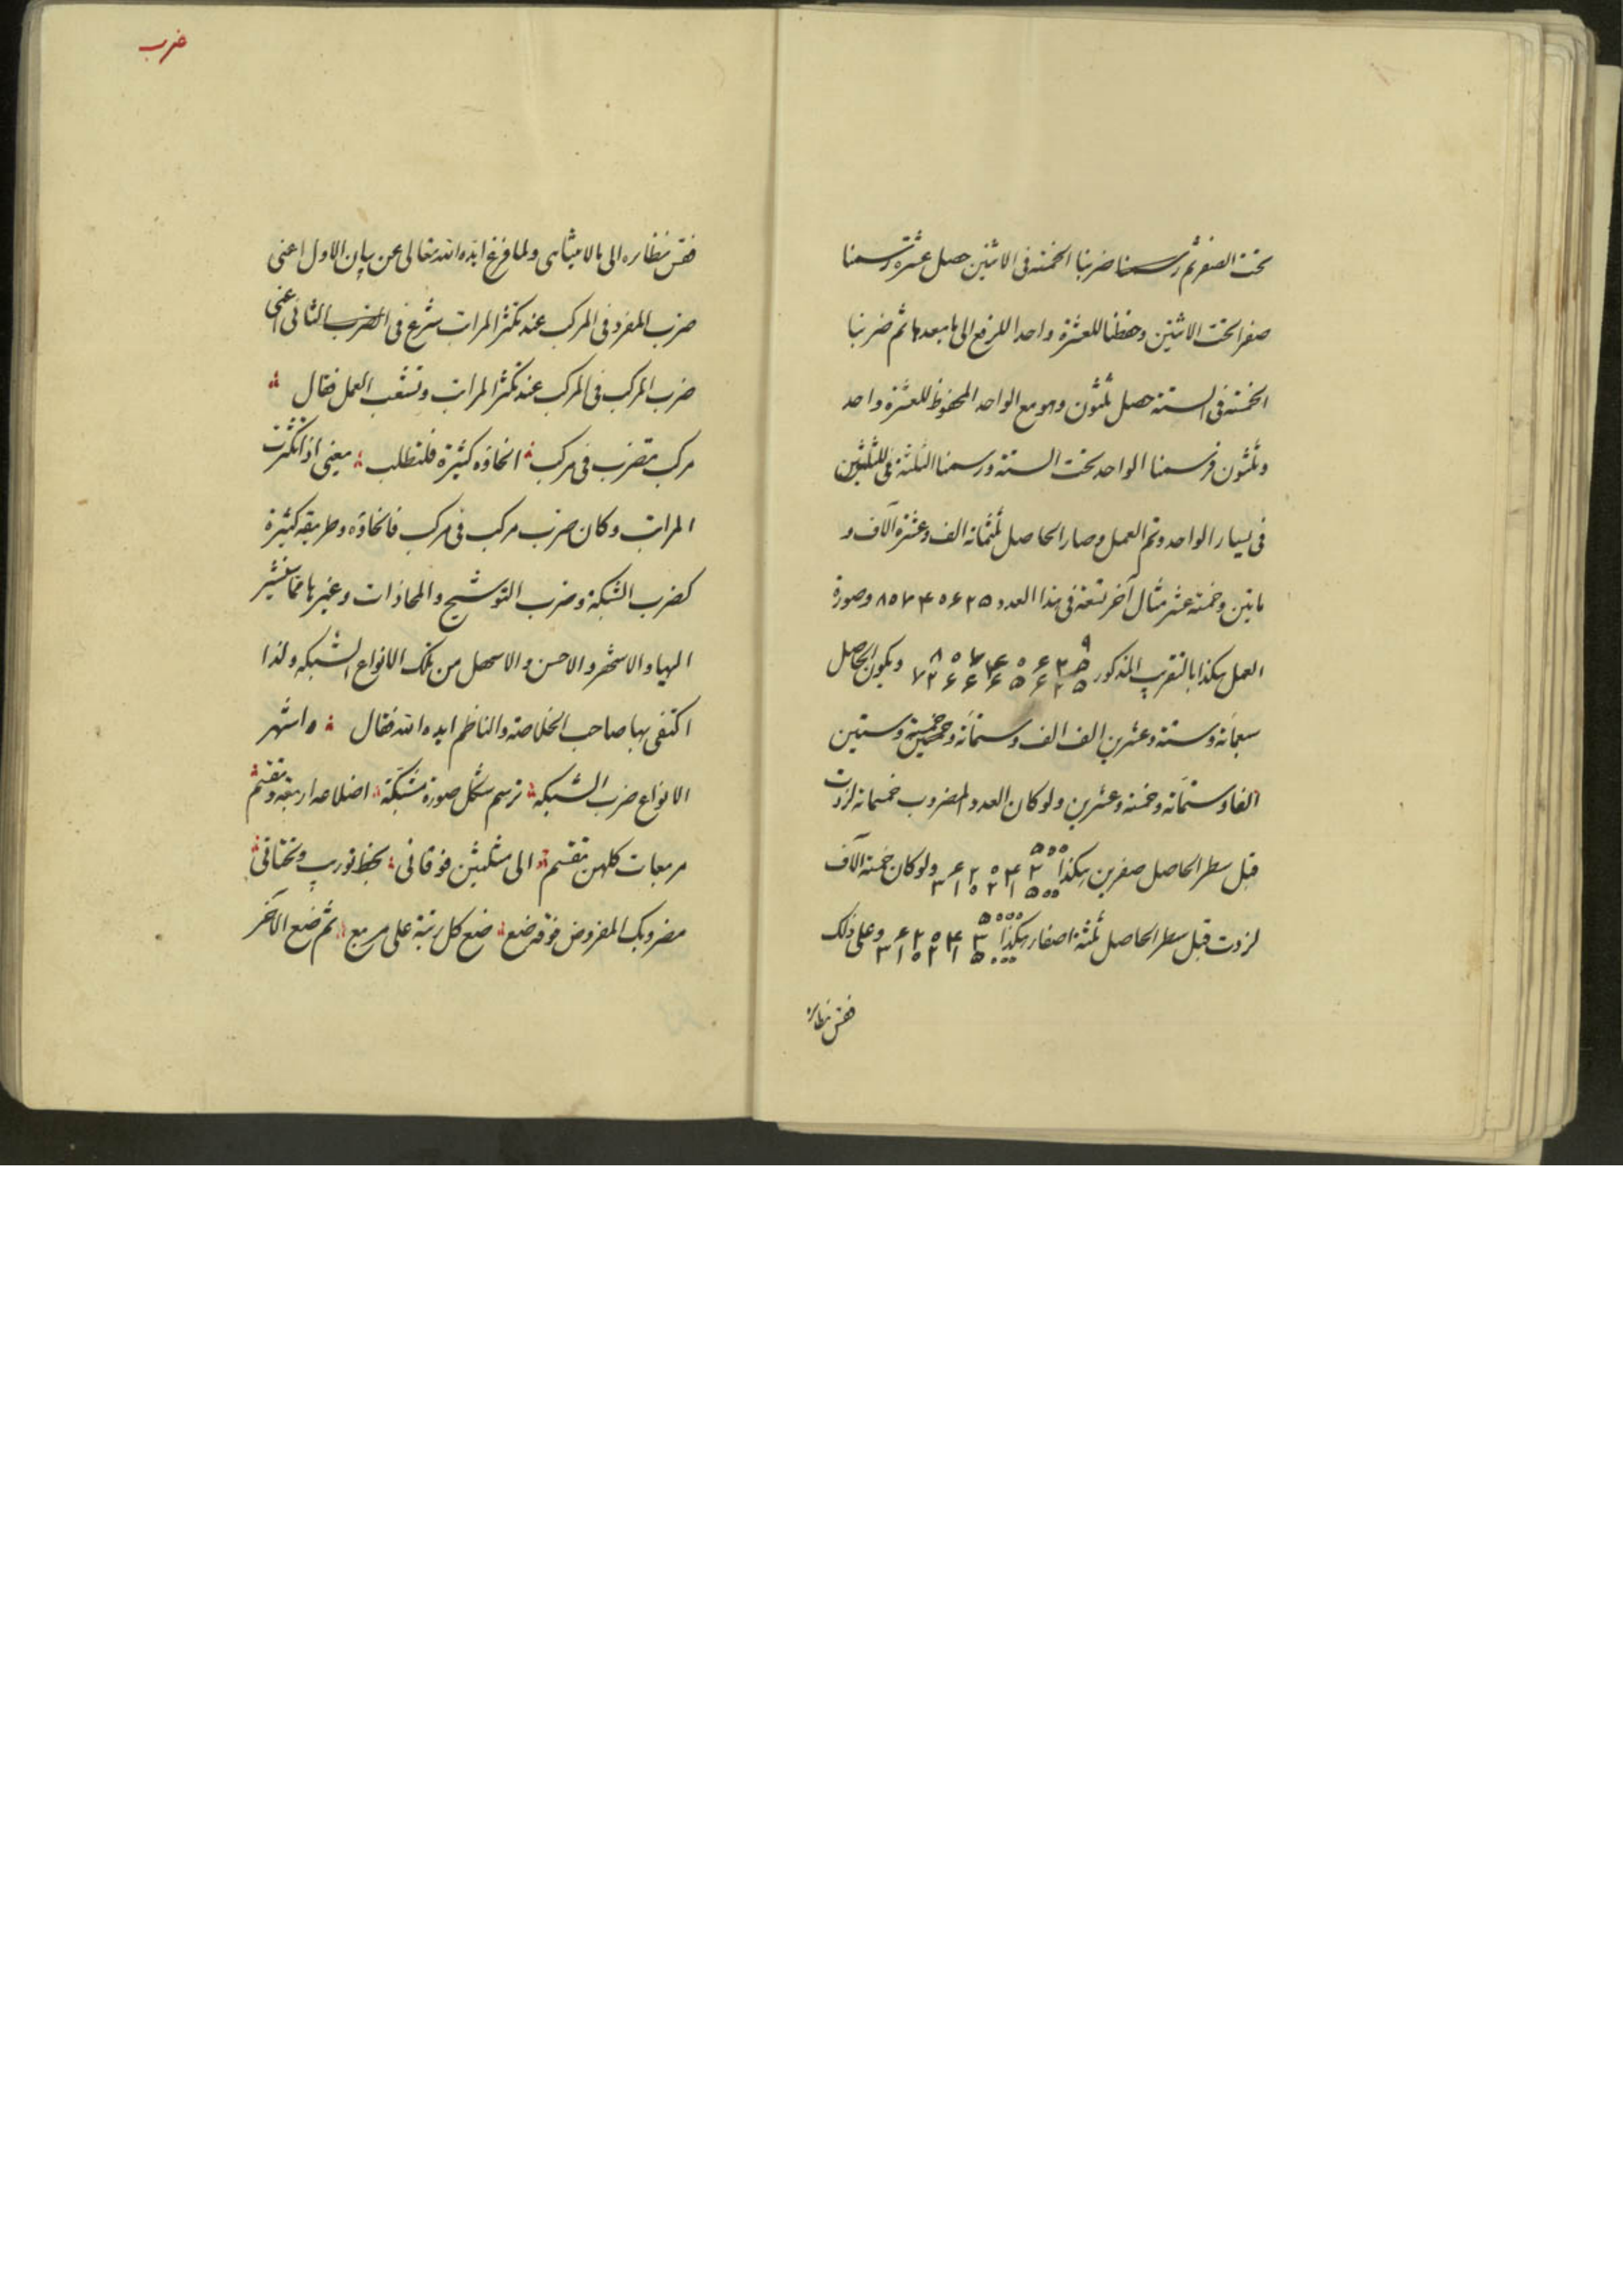 تحت الصفر ثم رسمنا ضربنا الخمسة فى الاثنين حصل عشرة رسمنا
صفرا تحت الاثنين وحفظنا للعشرة واحدا للرفع الى ما بعدها ثم ضربنا
الخمسة فى الستة حصل ثلثون وهو مع الواحد المحفوظ للعشرة واحد
وثلثون فرسمنا الواحد تحت الستة ورسمنا الثلثة للثلثين
فى يسار الواحد وتم العمل وصار الحاصل ثلثمائة الف وعشرة آلاف و
مايتين وخمسة عشر مثال آخر تسعة فى هذا العدد ۸۰۷۴۰۶۲۵ وصورة
العمل هكذا بالتقريب المذكور
۹
۸ ۰ ۷ ۴ ۰ ۶ ۲ ۵
۷ ۲ ۶ ۶ ۶ ۵ ۶ ۲ ۵
ويكون الحاصل
سبعمائة وستة وعشرين الف الف وستمائة وخمسة وستين
الفا وستمائة وخمسة وعشرين ولو كان العدد المضروب خمسمائة لزدت
قبل سطر الحاصل صفرين هكذا
۵۰۰
۶ ۲ ۰ ۴ ۳
۳ ۱ ۰ ۲ ۱ ۵۰۰
ولو كان خمسة آلاف
لزدت قبل سطر الحاصل ثلثة اصفار هكذا
۵۰۰۰
۶ ۲ ۰ ۴ ۳
۳ ۱ ۰ ۲ ۱ ۵۰۰۰
وعلى ذلك
فقس نظائره
ضرب
فقس نظائره الى ما لا يتناهى ولما فرغ ايده الله تعالى عن بيان الاول اعنى
ضرب المفرد فى المركب عند تكثر المرات شرع فى الضرب الثانى اعنى
ضرب المركب فى المركب عند تكثر المرات وتشعب العمل فقال
مركب تضرب فى مركب انحاؤه كثيرة فلتطلب يعنى اذا تكثرت
المرات وكان ضرب مركب فى مركب فانحاؤه وطريقه كثيرة
كضرب الشبكة وضرب التوشيح والمحاذات وغيرها مما سنشير
اليها والاشهر والاحسن والاسهل من تلك الانواع الشبكه ولذا
اكتفى بها صاحب الخلاصة والناظم ايده الله فقال واشهر
الانواع ضرب الشبكه ترسم شكل صورة مشبكة اضلاعه اربعة وتقسم
مربعات كلهن تقسم الى مثلثين فوقانى بخط توريب وتحتانى
مضروبك المفروض فوقه ضع ضع كل رتبة على مربع ثم ضع الآخر